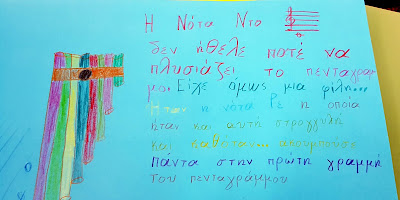 Η Νότα Ντο
δεν ήθελε ποτέ να
πλησιάζει το πενταγραμ
μο. Είχε όμως μια φίλη...
Ήταν η νότα Ρε η οποία
ήταν και αυτή στρογγυλή
και καθόταν... ακουμπούσε
πάντα στην πρώτη γραμμή
του πενταγράμμου